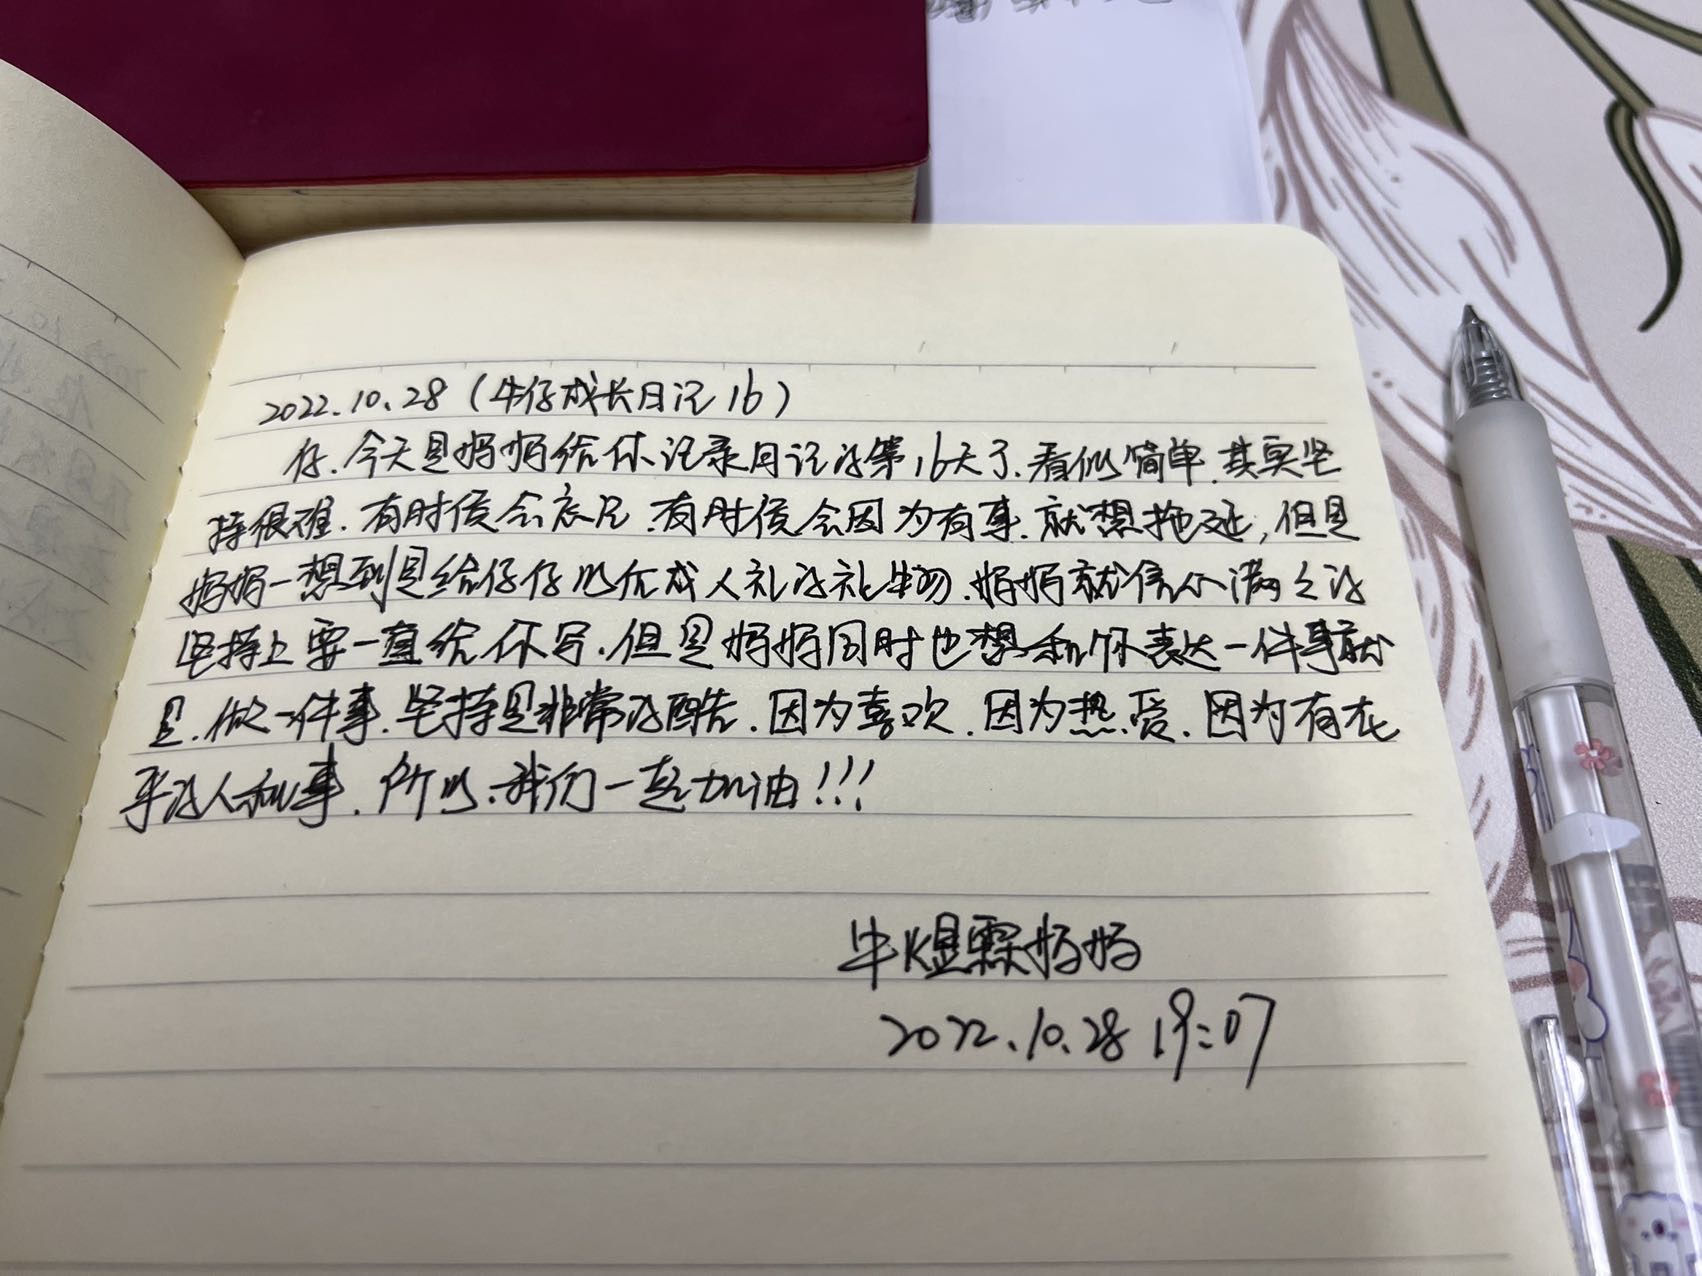 2022.10.28（牛仔成长日记16）
仔.今天是妈妈给你记录日记的第16天了.看似简单.其实坚
持很难.有时候会忘记.有时候会因为有事.就想拖延,但是
妈妈一想到是给仔仔以后成人礼的礼物.妈妈就信心满々的
坚持上要一直给你写.但是妈妈同时也想和你表达一件事就
是.做一件事.坚持是非常的酷.因为喜欢.因为热爱.因为有在
乎的人和事.所以.我们一起加油!!!
牛煜霖妈妈
2022.10.28 19:07